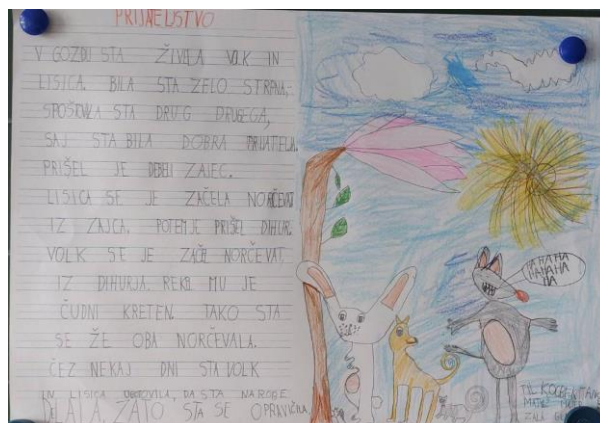 PRIJATELJSTVO
V GOZDU STA ŽIVELA VOLK IN
LISICA. BILA STA ZELO STRPNA,
SPOŠTOVALA STA DRUG DRUGEGA,
SAJ STA BILA DOBRA PRIJATELJA.
PRIŠEL JE DEBELI ZAJEC.
LISICA SE JE ZAČELA NORČEVAT
IZ ZAJCA. POTEM JE PRIŠEL DIHUR.
VOLK SE JE ZAČEL NORČEVAT
IZ DIHURJA. REKEL MU JE
ČUDNI KRETEN. TAKO STA
SE ŽE OBA NORČEVALA.
ČEZ NEKAJ DNI STA VOLK
IN LISICA UGOTOVILA, DA STA NAROBE
DELALA, ZATO STA SE OPRAVIČILA.
HA HA HA
HA HA HA
HA
TIL
MATIC
ZALA